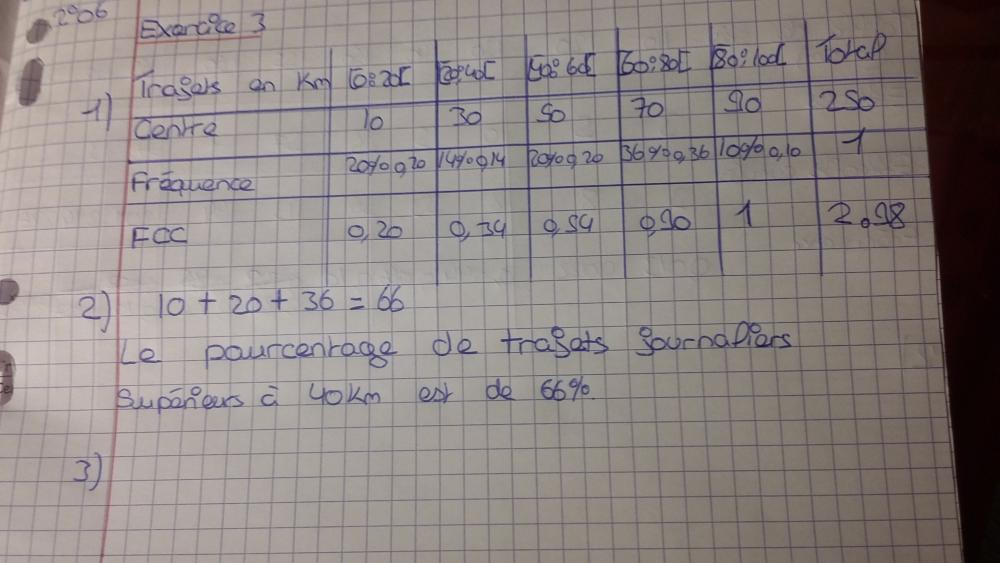 2°06
Exercice 3
1)
Trajets en Km [0;20[ [20;40[ [40;60[ [60;80[ [80;100[ Total
Centre 10 30 50 70 90 250
Fréquence 20% 0,20 14% 0,14 20% 0,20 36% 0,36 10% 0,10 1
FCC 0,20 0,34 0,54 0,90 1 2,98
2) 10 + 20 + 36 = 66
Le pourcentage de trajets journaliers
Supérieurs à 40Km est de 66%.
3)